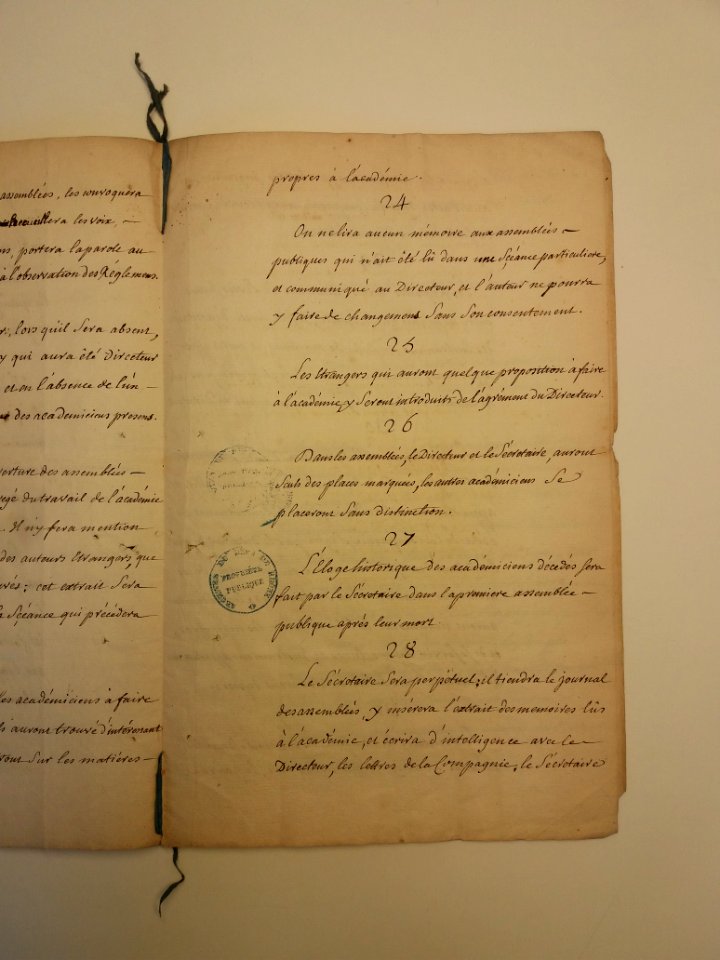 assemblées, les convoquera
recueillera les voix, —
ns, portera la parole au
à l'observation des Réglemens.
r, lors qu'il Sera absent,
y qui aura été Directeur
et en l'absence de l'un —
des academiciens presens.
verture des assemblées —
regé du travail de l'académie
. Il n'y fera mention
des auteurs Etrangers, que
uvés; cet extrait Sera
a Séance qui précédera
les académiciens à faire
ls auront trouvé d'intéressant
ront Sur les matières —
propres à l'académie.
24
On ne lira aucun mémoire aux assemblées —
publiques qui n'ait été lû dans une Séance particuliere,
et communiqué au Directeur, et l'auteur ne pourra
y faire de changemens Sans Son consentement.
25
Les Etrangers qui auront quelque proposition à faire
à l'académie, y Seront introduits de l'agrément du Directeur.
26
Dans les assemblées, le Directeur et le Sécretaire, auront
Seuls des places marquées, les autres académiciens Se
placeront Sans distinction.
27
L'Éloge historique des académiciens décedés sera
fait par le Sécretaire dans la premiere assemblée —
publique aprés leur mort
28
Le Sécretaire Sera perpétuel; il tiendra le journal
des assemblées, y insérera l'extrait des memoires lûs
à l'académie, et écrira d'intelligence avec le —
Directeur, les lettres de la Compagnie; le Sécretaire
ARCHIVES DU DÉPT DU RHONE
PROPRIÉTÉ
PUBLIQUE